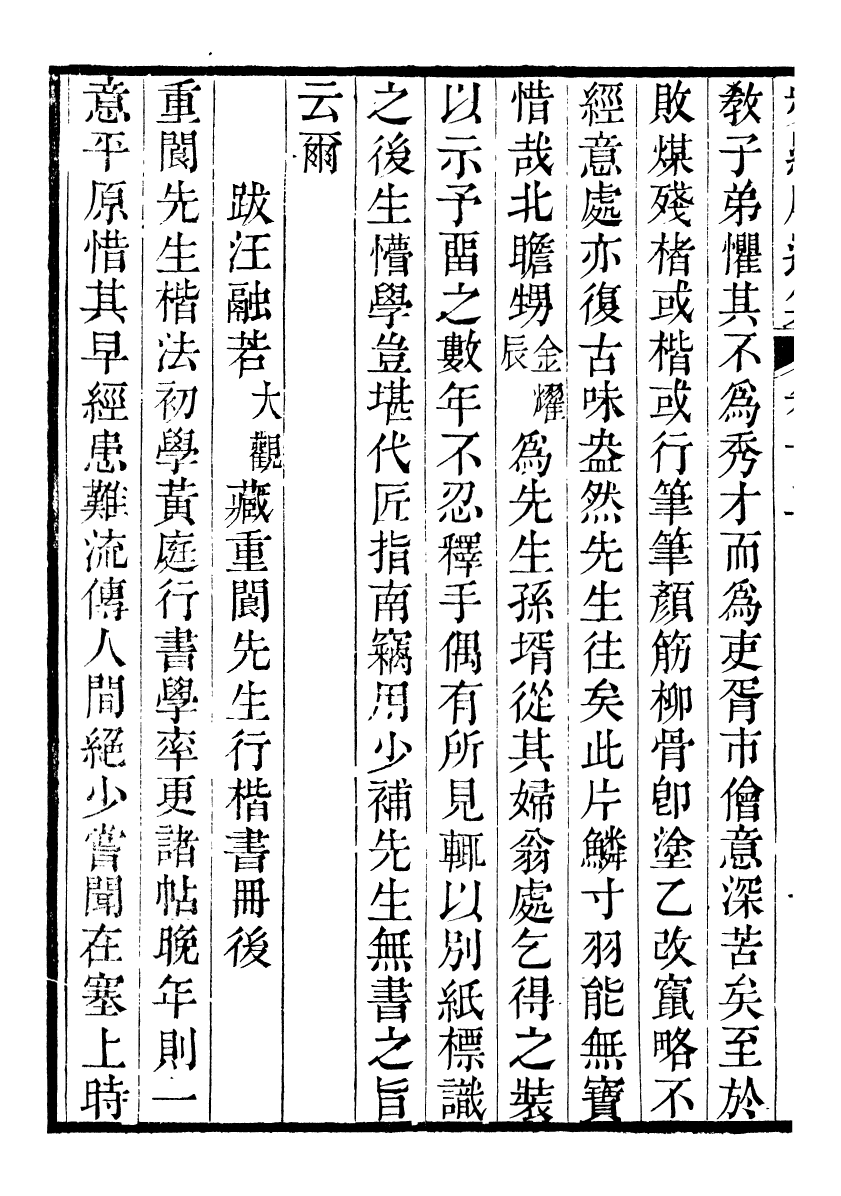 教子弟懼其不爲秀才而爲吏胥市儈意深苦矣至於
敗煤殘楮或楷或行筆筆顏筋柳骨卽塗乙改竄略不
經意處亦復古味盎然先生往矣此片鱗寸羽能無寶
惜哉北瞻甥金耀辰爲先生孫壻從其婦翁處乞得之裝
以示予畱之數年不忍釋手偶有所見輒以別紙標識
之後生懵學豈堪代匠指南竊用少補先生無書之旨
云爾
跋汪融若大觀藏重閬先生行楷書冊後
重閬先生楷法初學黃庭行書學率更諸帖晚年則一
意平原惜其早經患難流傳人間絕少嘗聞在塞上時